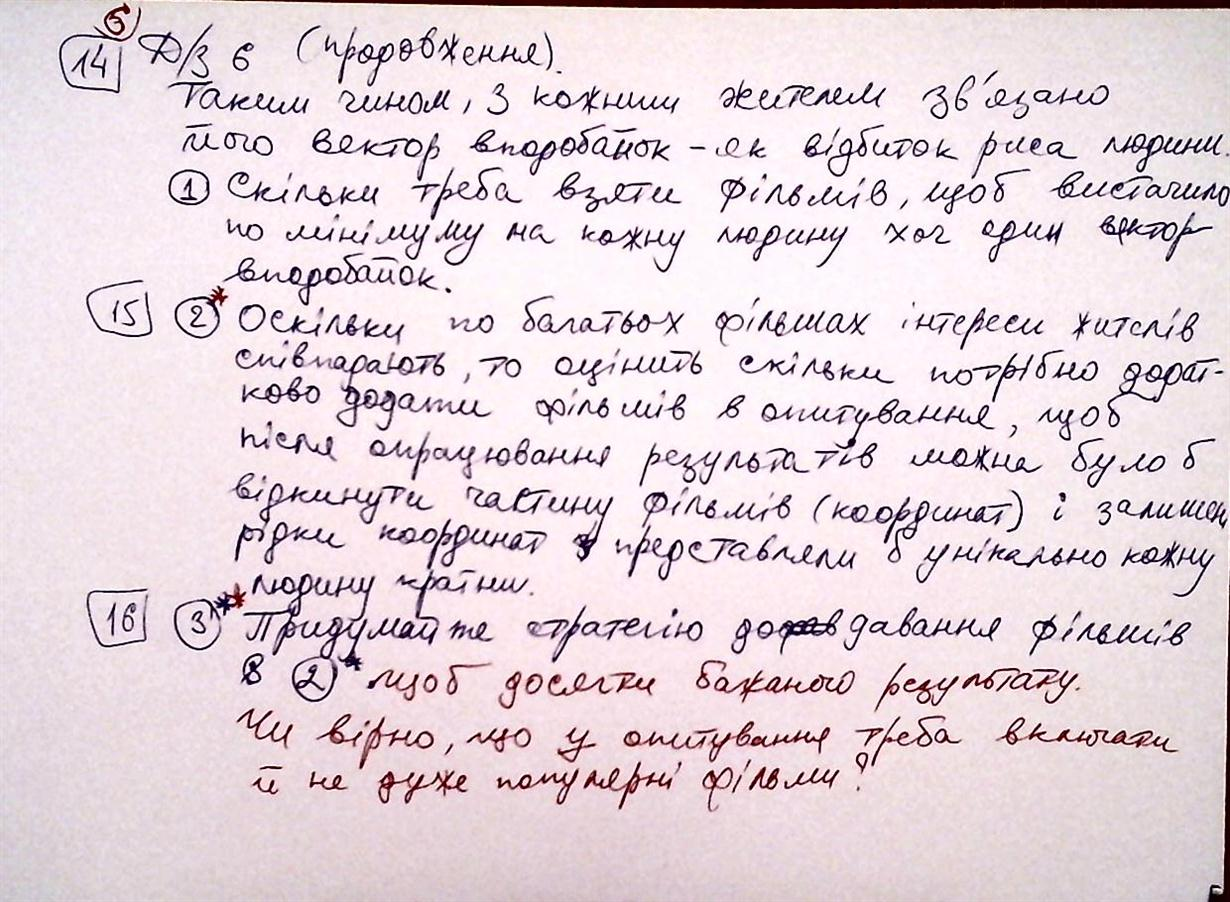 б
14 Д/З 6 (продовження).
Таким чином, з кожним жителем зв'язано
його вектор вподобайок - як відбиток риса людини.
1 Скільки треба взяти фільмів, щоб вистачило
по мінімуму на кожну людину хоч один вектор
вподобайок.
15 2* Оскільки по багатьох фільмах інтереси жителів
співпадають, то оцініть скільки потрібно додат-
ково додати фільмів в опитування, щоб
після опрацювання результатів можна було б
відкинути частину фільмів (координат) і залишен
рідки координат представляли б унікально кожну
людину країни.
16 3** Придумайте стратегію додавання фільмів
в 2* щоб досягти бажаного результату.
Чи вірно, що у опитування треба включати
й не дуже популярні фільми?